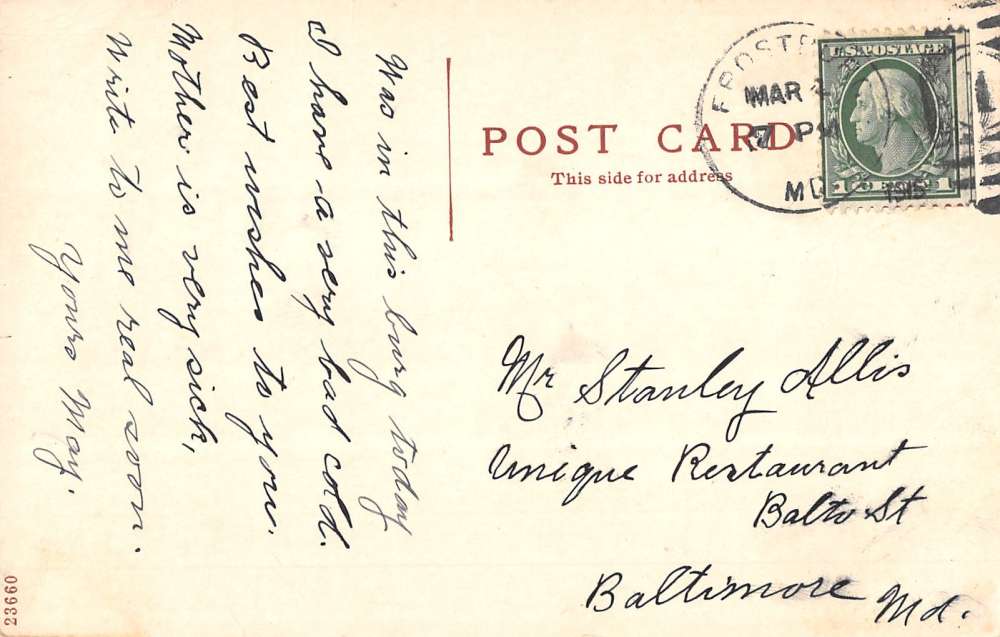 Was in this burg today
I have a very bad cold.
Best wishes to you.
Mother is very sick,
Write to me real soon.
Yours May.
POST CARD
This side for address
MAR
7 PM
MD
1915
U.S. POSTAGE
1 CENT 1
Mr Stanley Allis
Unique Restaurant
Balto St
Baltimore Md.
23660